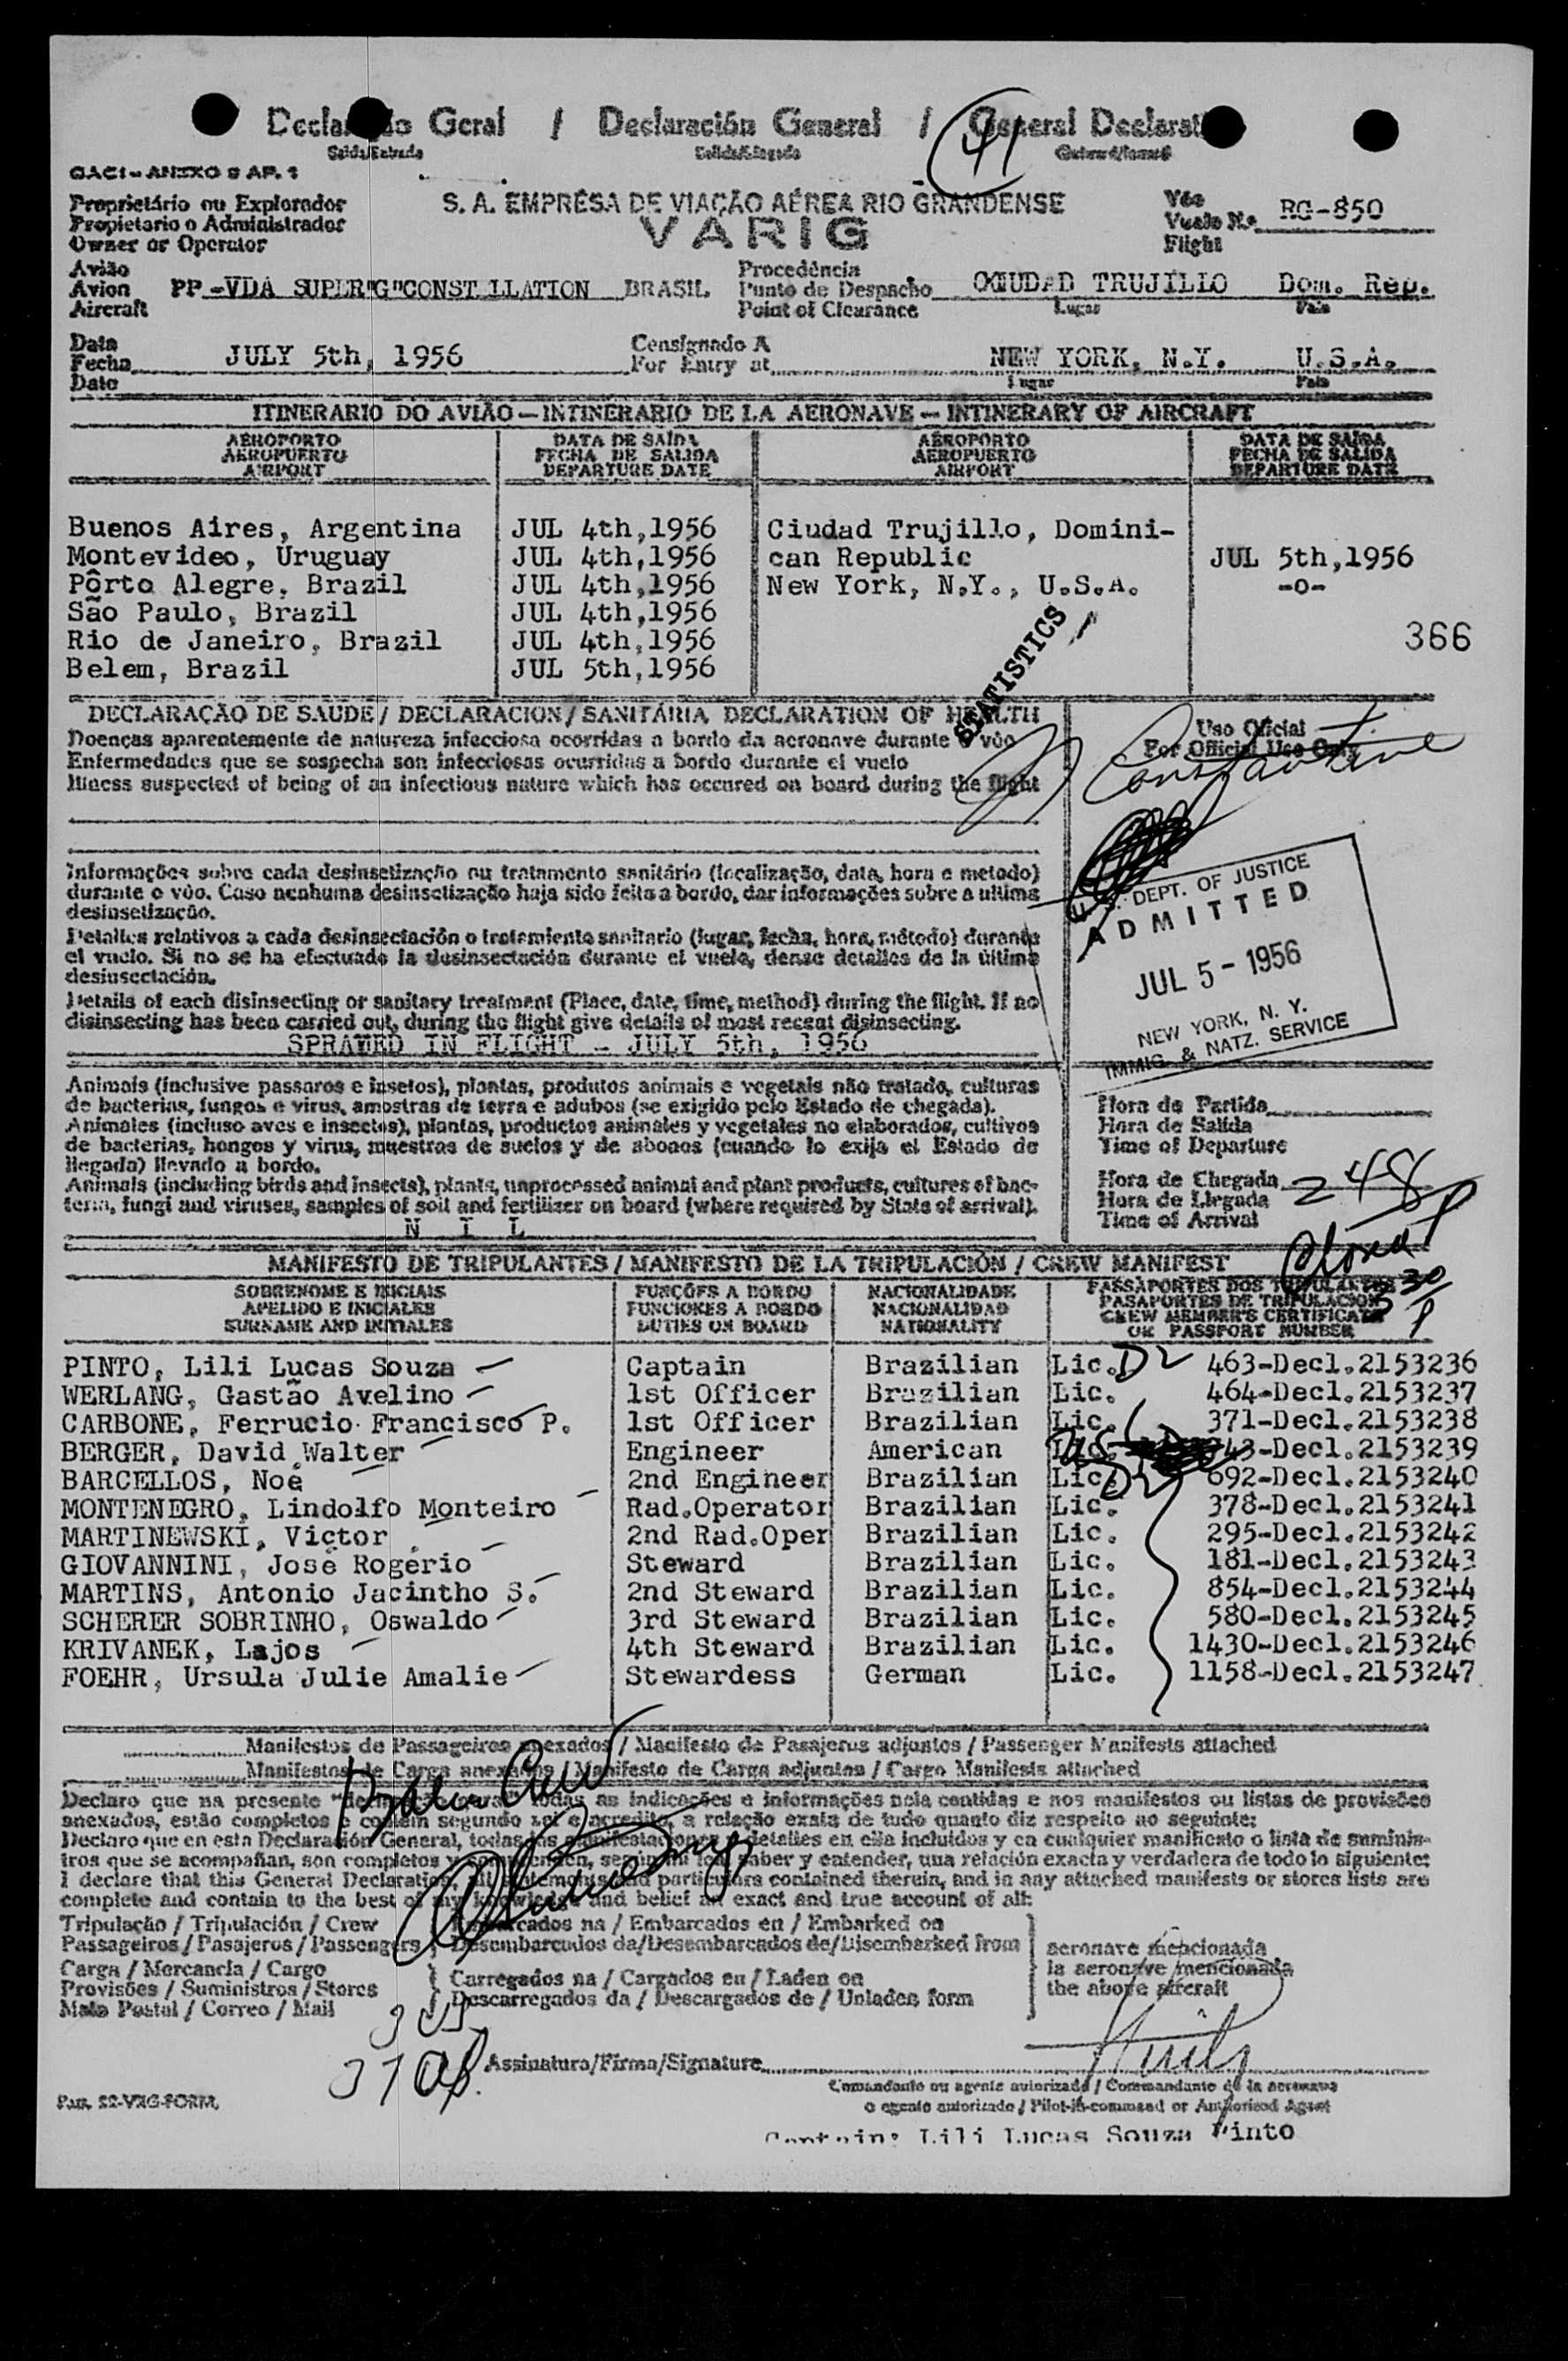 Declaração Geral / Declaración General / General Declarat
Saída/Entrada Salida/Llegada Outward/Inward
41
OACI - ANEXO 9 AP. 1
Proprietário ou Explorador
Propietario o Administrador
Owner or Operator
S. A. EMPRÊSA DE VIAÇÃO AÉREA RIO GRANDENSE
VARIG
Vôo
Vuelo N.º RG-850
Flight
Avião
Avion PP-VDA SUPER"G"CONST LLATION BRASIL
Aircraft
Procedência
Punto de Despacho CIUDAD TRUJILLO Dom. Rep.
Point of Clearance Lugar País
Data
Fecha JULY 5th, 1956
Date
Consignado A
For Entry at NEW YORK, N.Y. U.S.A.
Lugar País
ITINERARIO DO AVIÃO — INTINERARIO DE LA AERONAVE — INTINERARY OF AIRCRAFT
AEROPORTO DATA DE SAÍDA AEROPORTO DATA DE SAÍDA
AEROPUERTO FECHA DE SALIDA AEROPUERTO FECHA DE SALIDA
AIRPORT DEPARTURE DATE AIRPORT DEPARTURE DATE
Buenos Aires, Argentina JUL 4th,1956 Ciudad Trujillo, Domini-
Montevideo, Uruguay JUL 4th,1956 can Republic JUL 5th,1956
Pôrto Alegre, Brazil JUL 4th,1956 New York, N.Y., U.S.A. -o-
São Paulo, Brazil JUL 4th,1956
Rio de Janeiro, Brazil JUL 4th,1956
Belem, Brazil JUL 5th,1956
366
STATISTICS
DECLARAÇÃO DE SAUDE / DECLARACION / SANITÁRIA DECLARATION OF HEALTH
Doenças aparentemente de natureza infecciosa ocorridas a bordo da aeronave durante o vôo
Enfermedades que se sospecha son infecciosas ocurridas a bordo durante el vuelo
Illness suspected of being of an infectious nature which has occured on board during the flight
Uso Oficial
For Official Use Only
Constantine
Informações sobre cada desinsetização ou tratamento sanitário (localização, data, hora e metodo)
durante o vôo. Caso nenhuma desinsetização haja sido feita a bordo, dar informações sobre a ultima
desinsetização.
Detalles relativos a cada desinsectación o tratamiento sanitario (lugar, fecha, hora, método) durante
el vuelo. Si no se ha efectuado la desinsectación durante el vuelo, dense detalles de la última
desinsectación.
Details of each disinsecting or sanitary treatment (Place, date, time, method) during the flight. If no
disinsecting has been carried out, during the flight give details of most recent disinsecting.
SPRAYED IN FLIGHT - JULY 5th, 1956
U. S. DEPT. OF JUSTICE
ADMITTED
JUL 5 - 1956
NEW YORK, N. Y.
IMMIG. & NATZ. SERVICE
Animais (inclusive passaros e insetos), plantas, produtos animais e vegetais não tratado, culturas
de bacterias, fungos e virus, amostras de terra e adubos (se exigido pelo Estado de chegada).
Animales (incluso aves e insectos), plantas, productos animales y vegetales no elaborados, cultivos
de bacterias, hongos y virus, muestras de suelos y de abonos (cuando lo exija el Estado de
llegada) llevado a bordo.
Animals (including birds and insects), plants, unprocessed animal and plant products, cultures of bac-
teria, fungi and viruses, samples of soil and fertilizer on board (where required by State of arrival).
N I L
Hora de Partida
Hora de Salida
Time of Departure
Hora de Chegada 248 P
Hora de Llegada
Time of Arrival
Closed 3 30 P
MANIFESTO DE TRIPULANTES / MANIFESTO DE LA TRIPULACIÓN / CREW MANIFEST
SOBRENOME E INICIAIS FUNÇÕES A BORDO NACIONALIDADE PASSAPORTES DOS TRIPULANTES
APELIDO E INICIALES FUNCIONES A BORDO NACIONALIDAD PASAPORTES DE TRIPULACION
SURNAME AND INITIALES DUTIES ON BOARD NATIONALITY CREW MEMBER'S CERTIFICATE
OR PASSPORT NUMBER
PINTO, Lili Lucas Souza Captain Brazilian Lic. D2 463-Decl.2153236
WERLANG, Gastão Avelino 1st Officer Brazilian Lic. 464-Decl.2153237
CARBONE, Ferrucio Francisco P. 1st Officer Brazilian Lic. 371-Decl.2153238
BERGER, David Walter Engineer American Lic. USC 43-Decl.2153239
BARCELLOS, Noé 2nd Engineer Brazilian Lic. D2 692-Decl.2153240
MONTENEGRO, Lindolfo Monteiro Rad.Operator Brazilian Lic. 378-Decl.2153241
MARTINEWSKI, Victor 2nd Rad.Oper Brazilian Lic. 295-Decl.2153242
GIOVANNINI, José Rogério Steward Brazilian Lic. 181-Decl.2153243
MARTINS, Antonio Jacintho S. 2nd Steward Brazilian Lic. 854-Decl.2153244
SCHERER SOBRINHO, Oswaldo 3rd Steward Brazilian Lic. 580-Decl.2153245
KRIVANEK, Lajos 4th Steward Brazilian Lic. 1430-Decl.2153246
FOEHR, Ursula Julie Amalie Stewardess German Lic. 1158-Decl.2153247
Manifestos de Passageiros anexados / Manifesto de Pasajeros adjuntos / Passenger Manifests attached
Manifestos de Carga anexados / Manifesto de Carga adjuntos / Cargo Manifests attached
Declaro que na presente "declaração geral" todas as indicações e informações nela contidas e nos manifestos ou listas de provisões
anexados, estão completos e contêm segundo sei e acredito, a relação exata de tudo quanto diz respeito ao seguinte:
Declaro que en esta Declaración General, todas las manifestaciones y detalles en ella incluidos y en cualquier manifiesto o lista de suminis-
tros que se acompañan, son completos y comprenden, según mi leal saber y entender, una relación exacta y verdadera de todo lo siguiente:
I declare that this General Declaration, all statements and particulars contained therein, and in any attached manifests or stores lists are
complete and contain to the best of my knowledge and belief an exact and true account of all:
Tripulação / Tripulación / Crew Embarcados na / Embarcados en / Embarked on
Passageiros / Pasajeros / Passengers Desembarcados da/Desembarcados de/Disembarked from
Carga / Mercancia / Cargo Carregados na / Cargados en / Laden on
Provisões / Suministros / Stores Descarregados da / Descargados de / Unladen form
Mala Postal / Correo / Mail
aeronave mencionada
la aeronave mencionada
the above aircraft
Assinatura/Firma/Signature
Comandante ou agente autorizado / Commandante de la aeronave
o agente autorizado / Pilot-in-command or Authorized Agent
Pan. 22-VRG-FORM.
Captain: Lili Lucas Souza Pinto